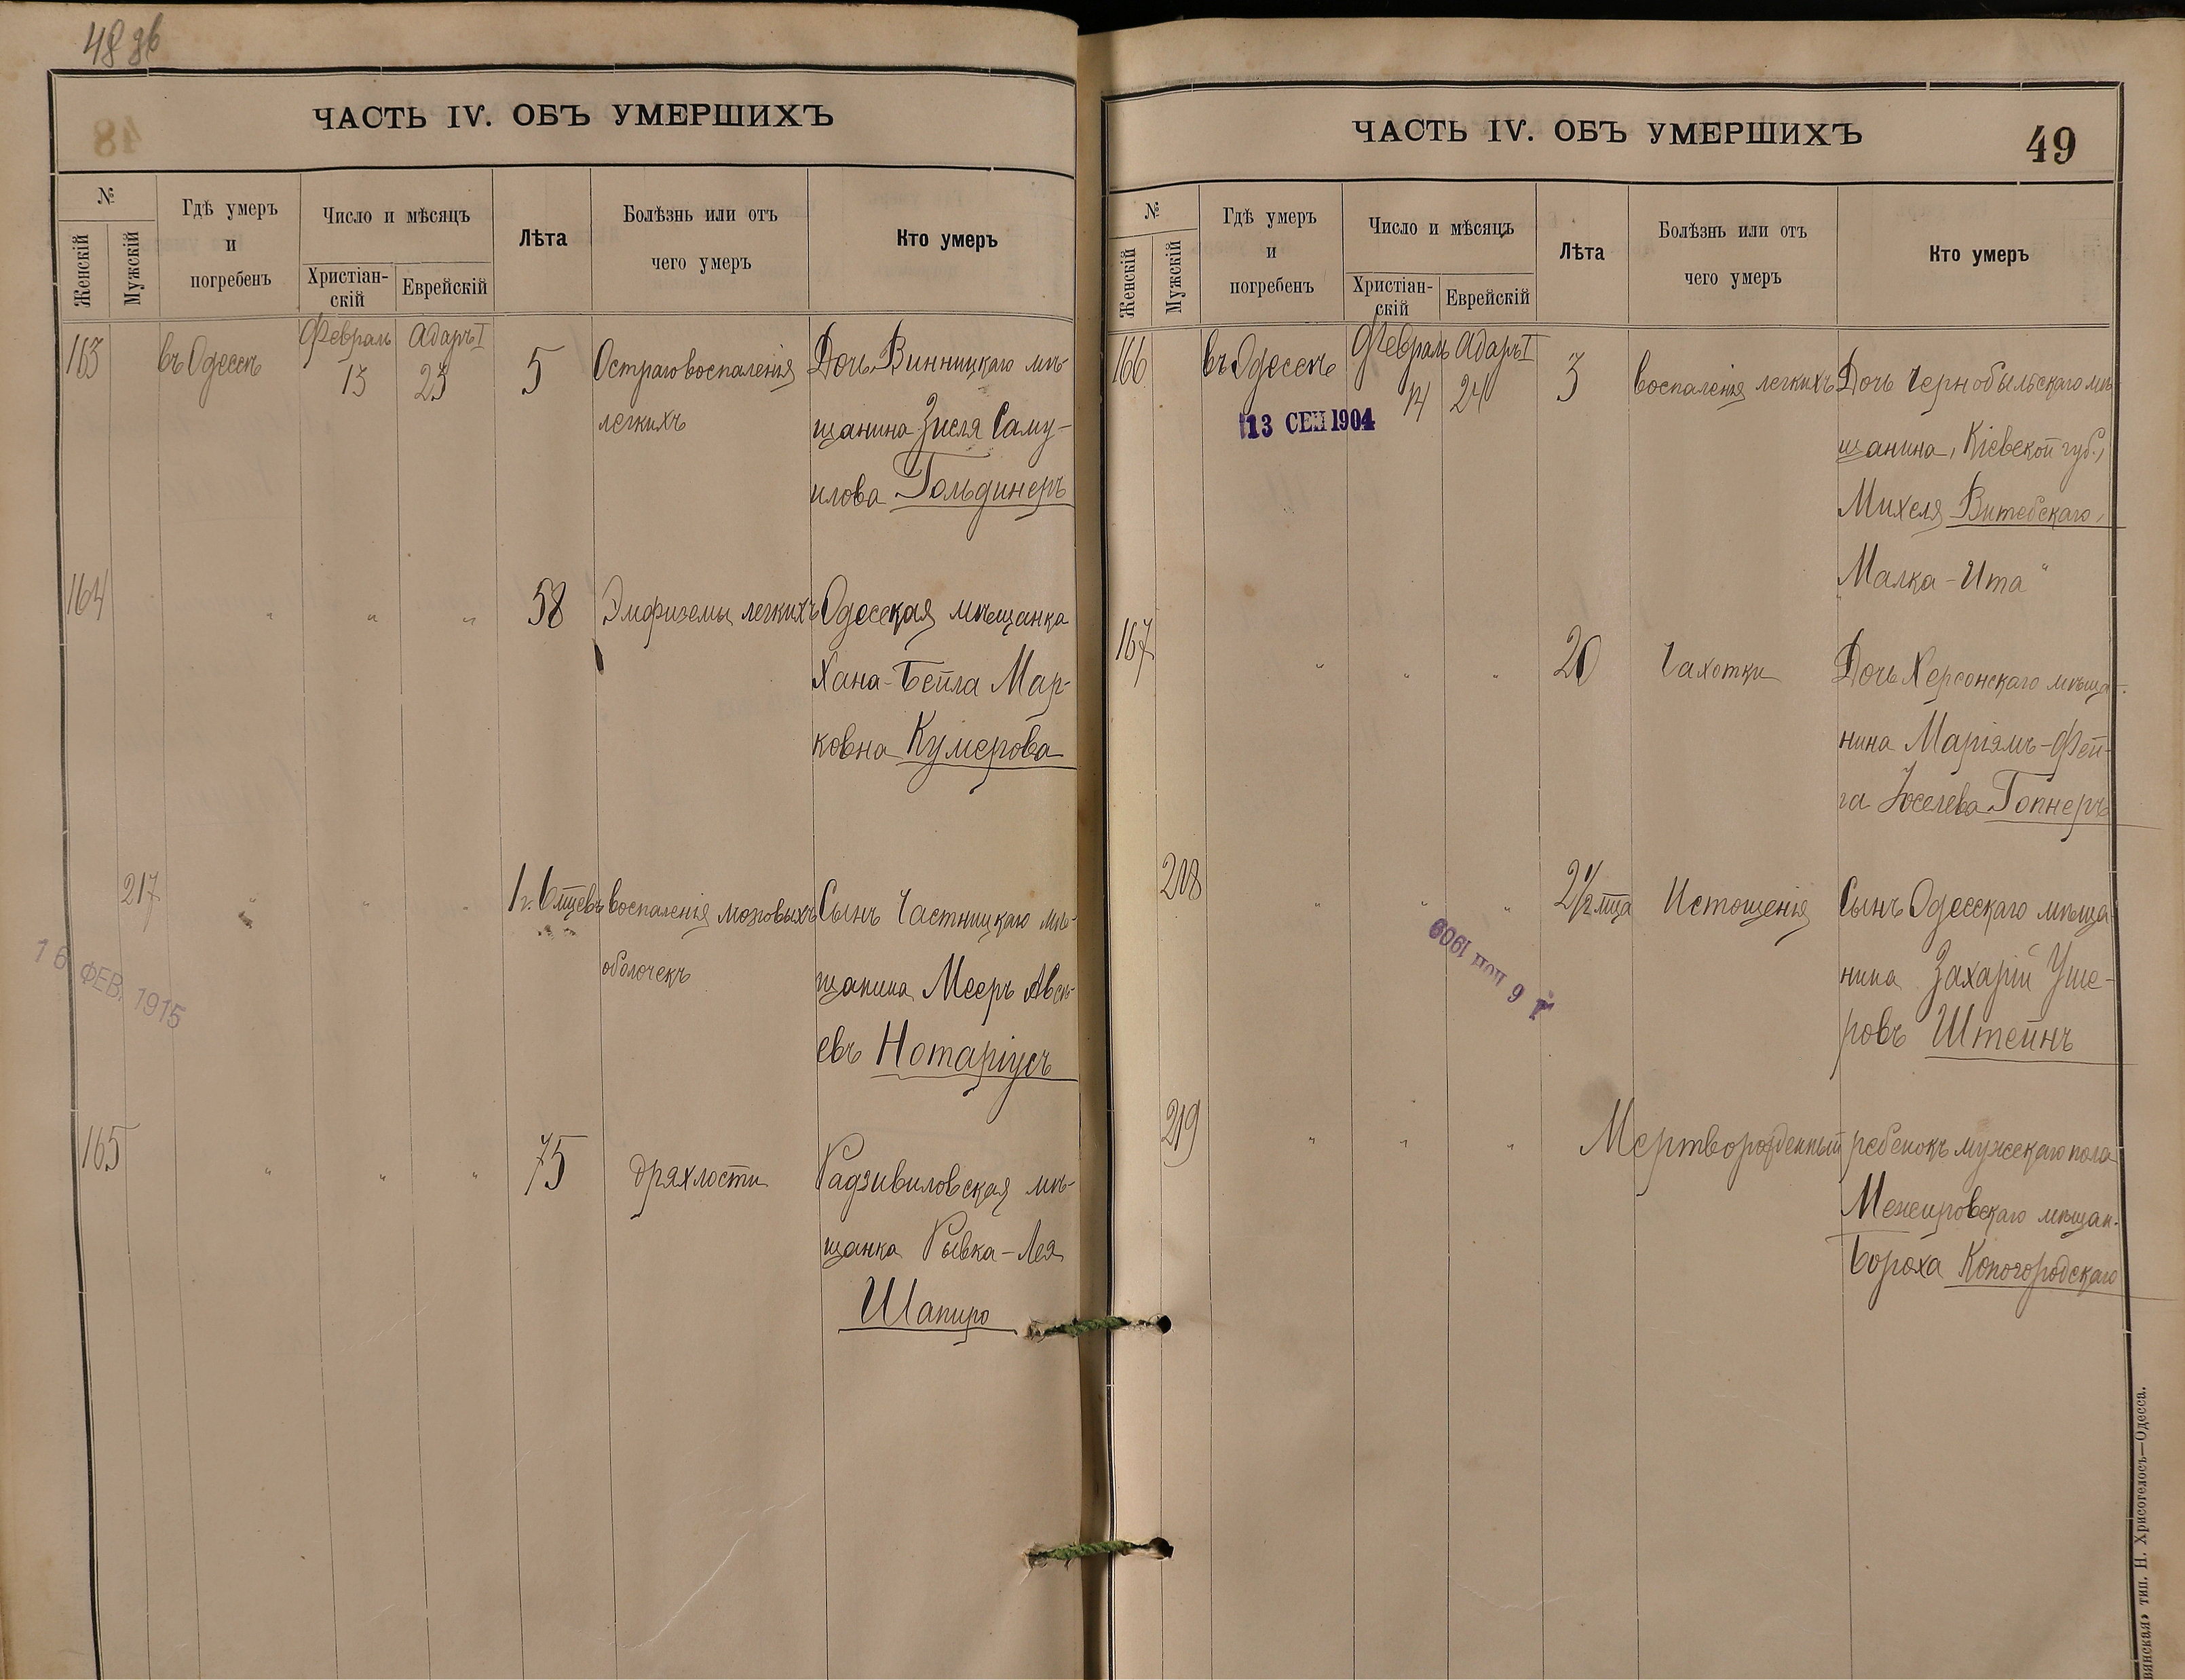 48 об
ЧАСТЬ IV. ОБЪ УМЕРШИХЪ
№
Женскій
Мужскій
Гдѣ умеръ
и
погребенъ
Число и мѣсяцъ
Христіан-
скій
Еврейскій
Лѣта
Болѣзнь или отъ
чего умеръ
Кто умеръ
163 въ Одессѣ Февраль 13 Адаръ I 23 5 Остраго воспаленія Дочь Винницкаго мѣ-
легкихъ щанина Зисля Саму-
илова Гольдинеръ
164 " " " 58 Эмфиземы легкихъ Одесская мѣщанка
Хана-Бейла Мар-
ковна Кумерова
217 " " " 1 г. 6 мцевъ воспаленія мозговыхъ Сынъ Частницкаго мѣ-
оболочекъ щанина Мееръ Авсѣ-
евъ Нотаріусъ
16 ФЕВ. 1915
165 " " " 75 дряхлости Радзивиловская мѣ-
щанка Рывка-Лея
Шапиро
ЧАСТЬ IV. ОБЪ УМЕРШИХЪ
49
№
Женскій
Мужскій
Гдѣ умеръ
и
погребенъ
Число и мѣсяцъ
Христіан-
скій
Еврейскій
Лѣта
Болѣзнь или отъ
чего умеръ
Кто умеръ
166 въ Одессѣ Февраль 14 Адаръ I 24 3 воспаленія легкихъ Дочь Чернобыльскаго мѣ-
13 СЕН 1904
щанина, Кіевской губ.,
Михеля Витебскаго,
"Малка-Ита"
167 " " " 20 Чахотки Дочь Херсонскаго мѣща-
нина Маріямъ-Фей-
га Іоселева Гопнеръ
218 " " " 2 1/2 мца Истощенія Сынъ Одесскаго мѣща-
нина Захарій Уше-
ровъ Штейнъ
219 " " " Мертворожденный ребенокъ мужескаго пола
Межировскаго мѣщан.
Бороха Копогородскаго
тип. Н. Хрисогелосъ—Одесса.